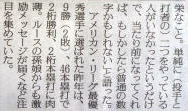 栄なこと。単純に（投手と
打者の）二つをやっている
人がいなかったというだけ
で、当たり前になってくれ
ば、もしかしたら普通の数
字かもしれない」と語った。
　アメリカン・リーグ最優
秀選手に選ばれた昨年は、
9勝、2敗、46本塁打で
2桁勝利、2桁本塁打の
ルースの孫娘からも激
励メッセージが届くなど注
目を集めていた。